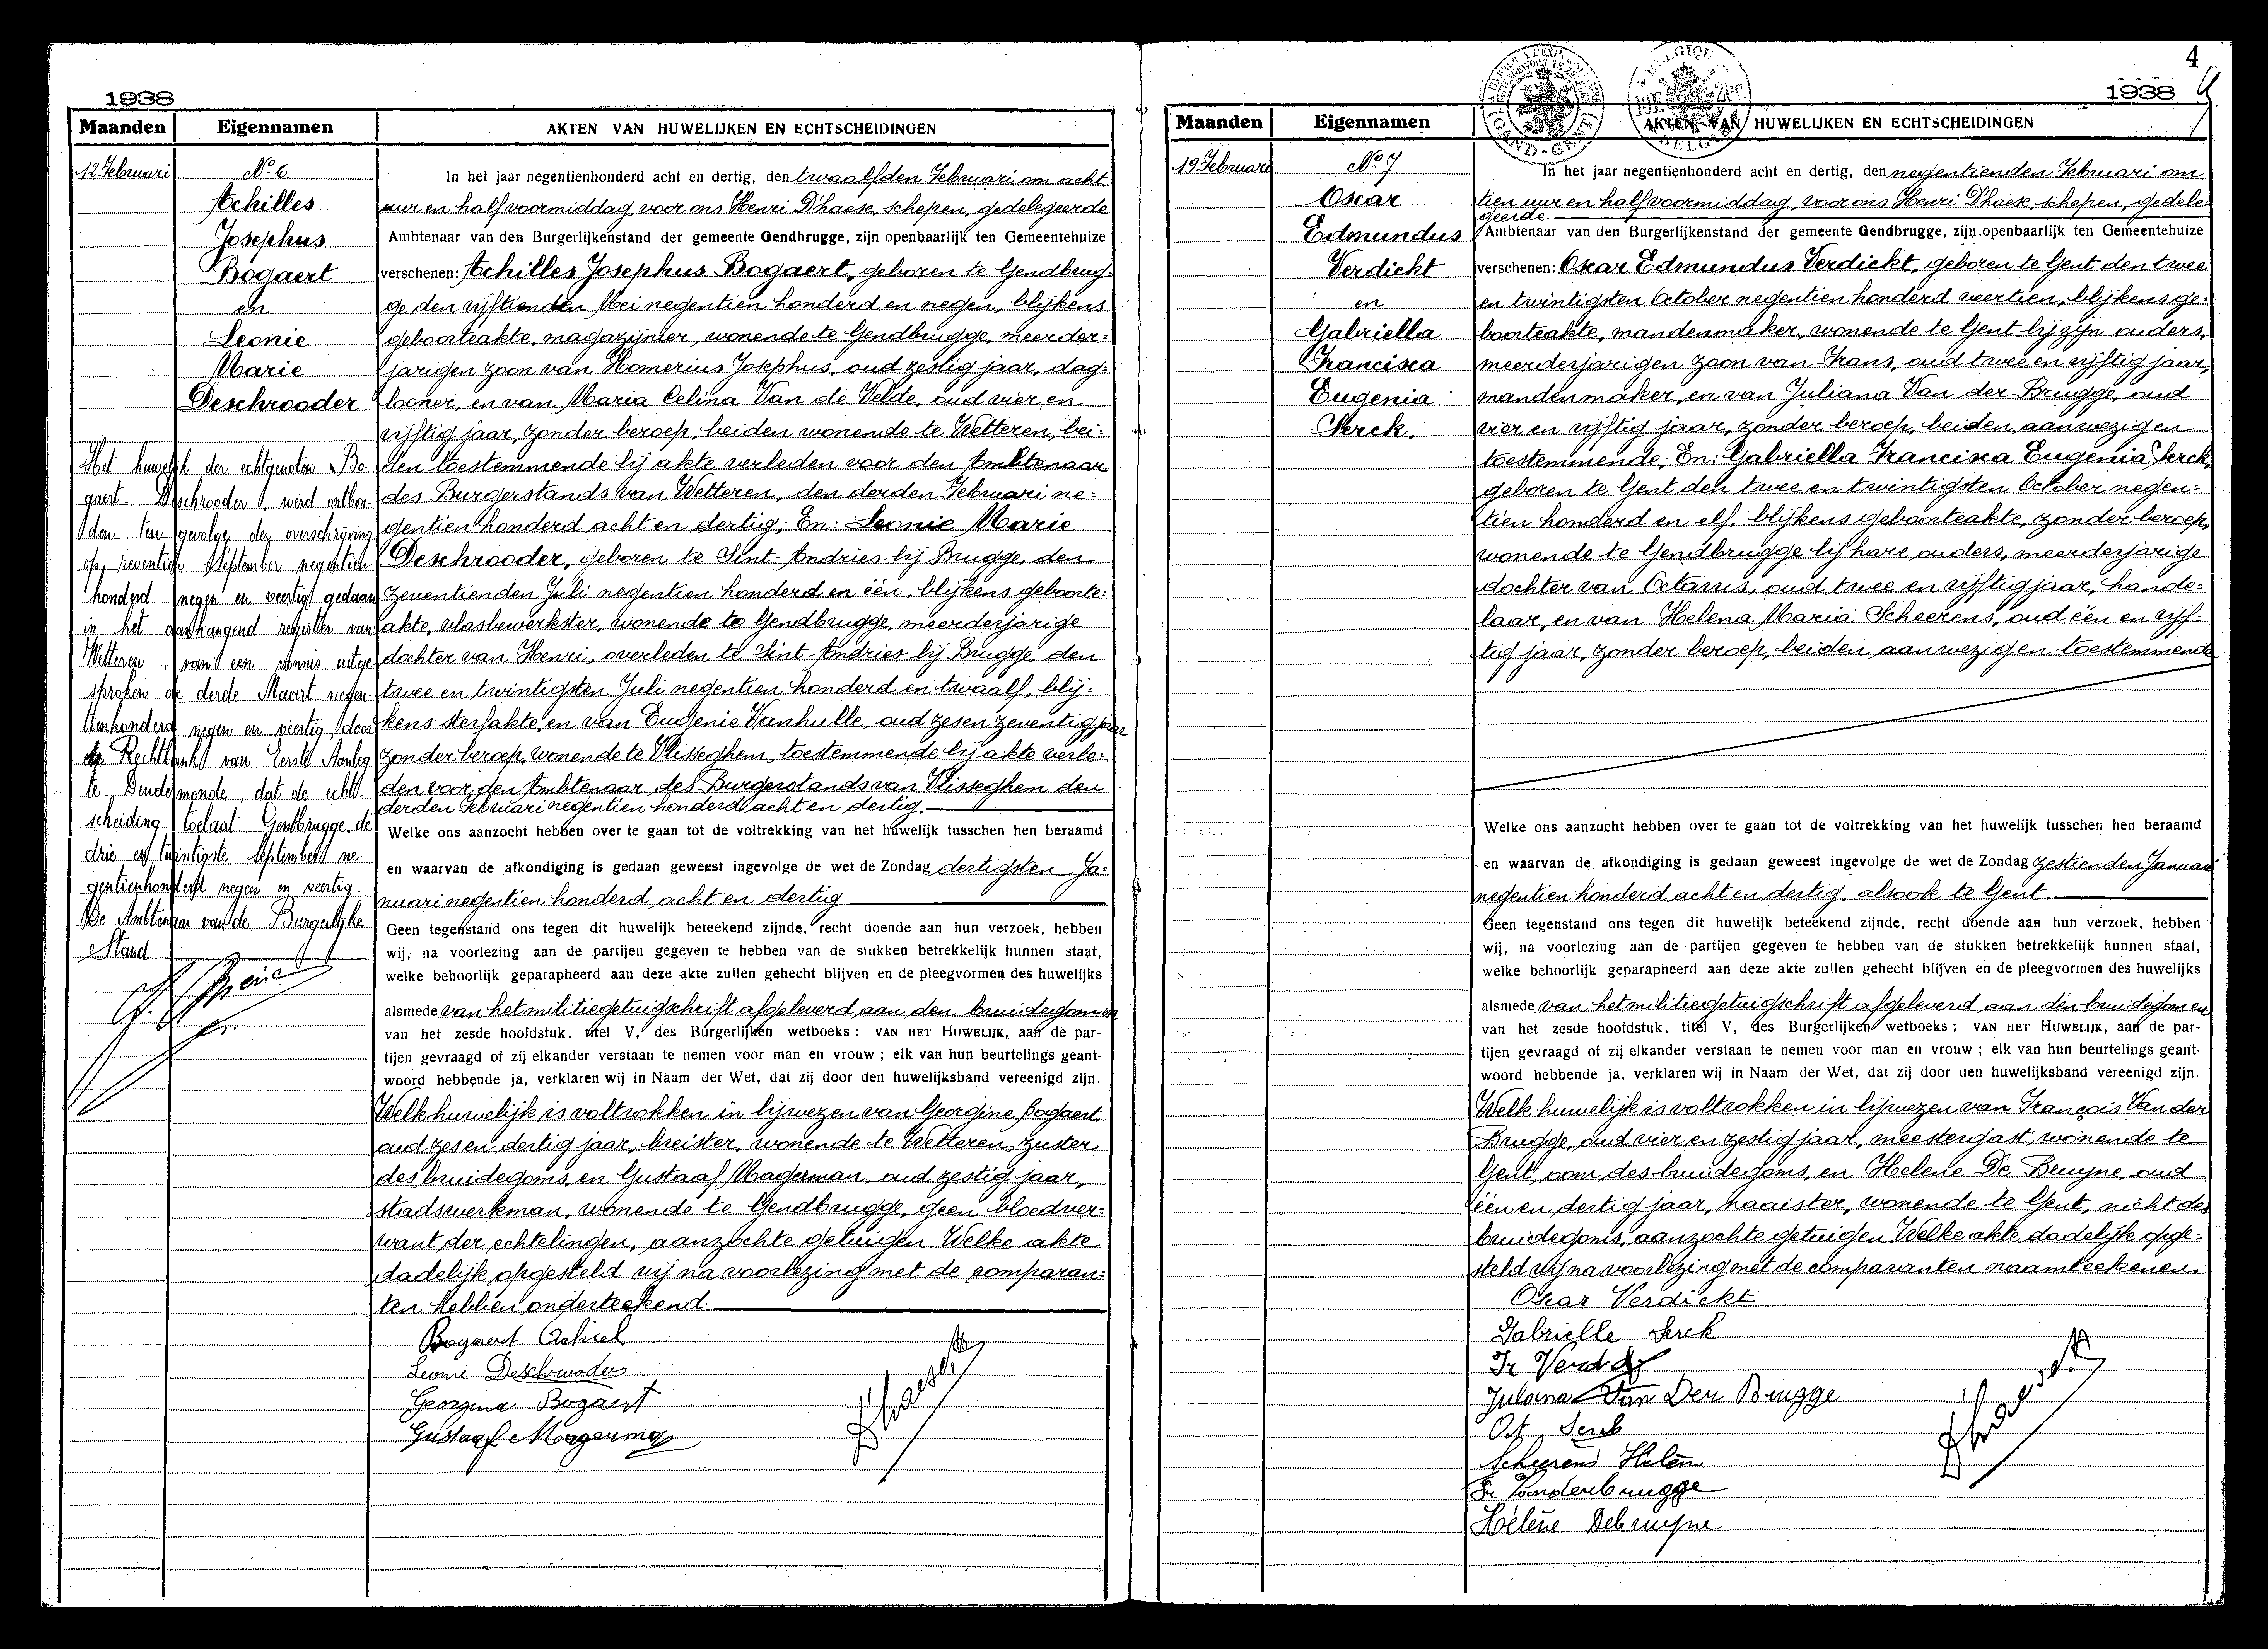 1938
Maanden Eigennamen AKTEN VAN HUWELIJKEN EN ECHTSCHEIDINGEN
12 Februari
No 6
Achilles
Josephus
Bogaert
en
Leonie
Marie
Deschrooder
Het huwelijk der echtgenoten Bo-
gaert-Deschrooder, werd ontbon-
den ten gevolge der overschrijving
op zeventien September negentien-
honderd negen en veertig gedaan
in het aanhangend register van
Wetteren, van een vonnis uitge
sproken de derde Maart negen-
tienhonderd negen en veertig door
de Rechtbank van Eerste Aanleg
te Dendermonde, dat de echt-
scheiding toelaat Gentbrugge, de
drie en twintigste September ne-
gentienhonderd negen en veertig.
De Ambtenaar van de Burgerlijke
Stand
In het jaar negentienhonderd acht en dertig, den twaalfden Februari om acht
uur en half voormiddag, voor ons Henri D'haese, schepen, gedelegeerde
Ambtenaar van den Burgerlijkenstand der gemeente Gendbrugge, zijn openbaarlijk ten Gemeentehuize
verschenen: Achilles Josephus Bogaert, geboren te Gendbrug-
ge den vijftienden Mei negentien honderd en negen, blijkens
geboorteakte, magazijnier, wonende te Gendbrugge, meerder-
jarigen zoon van Homerius Josephus, oud zestig jaar, dag-
looner, en van Maria Celina Van de Velde, oud vier en
vijftig jaar, zonder beroep, beiden wonende te Wetteren, bei-
den toestemmende bij akte verleden voor den Ambtenaar
des Burgerstands van Wetteren, den derden Februari ne-
gentien honderd acht en dertig; En: Leonie Marie
Deschrooder, geboren te Sint-Andries bij Brugge, den
zeventienden Juli negentien honderd en één, blijkens geboorte-
akte, vlasbewerkster, wonende te Gendbrugge, meerderjarige
dochter van Henri, overleden te Sint-Andries bij Brugge, den
twee en twintigsten Juli negentien honderd en twaalf, blij-
kens sterfakte, en van Eugenie Vanhulle, oud zes en zeventig jaar
zonder beroep, wonende te Vlisseghem, toestemmende bij akte verle-
den voor den Ambtenaar des Burgerstands van Vlisseghem den
derden Februari negentien honderd acht en dertig.
Welke ons aanzocht hebben over te gaan tot de voltrekking van het huwelijk tusschen hen beraamd
en waarvan de afkondiging is gedaan geweest ingevolge de wet de Zondag dertigsten Ja-
nuari negentien honderd acht en dertig
Geen tegenstand ons tegen dit huwelijk beteekend zijnde, recht doende aan hun verzoek, hebben
wij, na voorlezing aan de partijen gegeven te hebben van de stukken betrekkelijk hunnen staat,
welke behoorlijk geparapheerd aan deze akte zullen gehecht blijven en de pleegvormen des huwelijks
alsmede van het militiegetuigschrift afgeleverd aan den bruidegom en
van het zesde hoofdstuk, titel V, des Burgerlijken wetboeks: VAN HET HUWELIJK, aan de par-
tijen gevraagd of zij elkander verstaan te nemen voor man en vrouw; elk van hun beurtelings geant-
woord hebbende ja, verklaren wij in Naam der Wet, dat zij door den huwelijksband vereenigd zijn.
Welk huwelijk is voltrokken in bijwezen van Georgine Bogaert
oud zes en dertig jaar, breister, wonende te Wetteren, zuster
des bruidegoms, en Gustaaf Magerman, oud zestig jaar,
stadswerkman, wonende te Gendbrugge, geen bloedver-
want der echtelingen, aanzochte getuigen. Welke akte
dadelijk opgesteld wij na voorlezing met de comparan-
ten hebben onderteekend.
Bogaert Achiel
Leonie Deschrooder
Georgina Bogaert
Gustaaf Magerman
4
1938
Maanden Eigennamen AKTEN VAN HUWELIJKEN EN ECHTSCHEIDINGEN
19 Februari
No 7
Oscar
Edmundus
Verdickt
en
Gabriella
Francisca
Eugenia
Serck.
In het jaar negentienhonderd acht en dertig, den negentienden Februari om
tien uur en half voormiddag, voor ons Henri D'haese, schepen, gedele-
geerde.
Ambtenaar van den Burgerlijkenstand der gemeente Gendbrugge, zijn openbaarlijk ten Gemeentehuize
verschenen: Oscar Edmundus Verdickt, geboren te Gent den twee
en twintigsten October negentien honderd veertien, blijkens ge-
boorteakte, mandenmaker, wonende te Gent bij zijn ouders,
meerderjarigen zoon van Frans, oud twee en vijftig jaar,
mandenmaker, en van Juliana Van der Brugge, oud
vier en vijftig jaar, zonder beroep, beiden aanwezig en
toestemmende; En: Gabriella Francisca Eugenia Serck,
geboren te Gent den twee en twintigsten October negen-
tien honderd en elf, blijkens geboorteakte, zonder beroep,
wonende te Gendbrugge bij hare ouders, meerderjarige
dochter van Octavus, oud twee en vijftig jaar, hande-
laar, en van Helena Maria Scheerens, oud één en vijf-
tig jaar, zonder beroep, beiden aanwezig en toestemmende
Welke ons aanzocht hebben over te gaan tot de voltrekking van het huwelijk tusschen hen beraamd
en waarvan de afkondiging is gedaan geweest ingevolge de wet de Zondag zestienden Januari
negentien honderd acht en dertig, alsook te Gent.
Geen tegenstand ons tegen dit huwelijk beteekend zijnde, recht doende aan hun verzoek, hebben
wij, na voorlezing aan de partijen gegeven te hebben van de stukken betrekkelijk hunnen staat,
welke behoorlijk geparapheerd aan deze akte zullen gehecht blijven en de pleegvormen des huwelijks
alsmede van het militiegetuigschrift afgeleverd aan den bruidegom en
van het zesde hoofdstuk, titel V, des Burgerlijken wetboeks: VAN HET HUWELIJK, aan de par-
tijen gevraagd of zij elkander verstaan te nemen voor man en vrouw; elk van hun beurtelings geant-
woord hebbende ja, verklaren wij in Naam der Wet, dat zij door den huwelijksband vereenigd zijn.
Welk huwelijk is voltrokken in bijwezen van François Van der
Brugge, oud vier en zestig jaar, meestergast, wonende te
Gent, oom des bruidegoms, en Helene De Bruyne, oud
één en dertig jaar, naaister, wonende te Gent, nicht des
bruidegoms, aanzochte getuigen. Welke akte dadelijk opge-
steld wij na voorlezing met de comparanten naamteekenen.
Oscar Verdickt
Gabrielle Serck
Juliana Van Der Brugge
Oct. Serck
Scheerens Helen
Fr Vanderbrugge
Hélène Debruyne